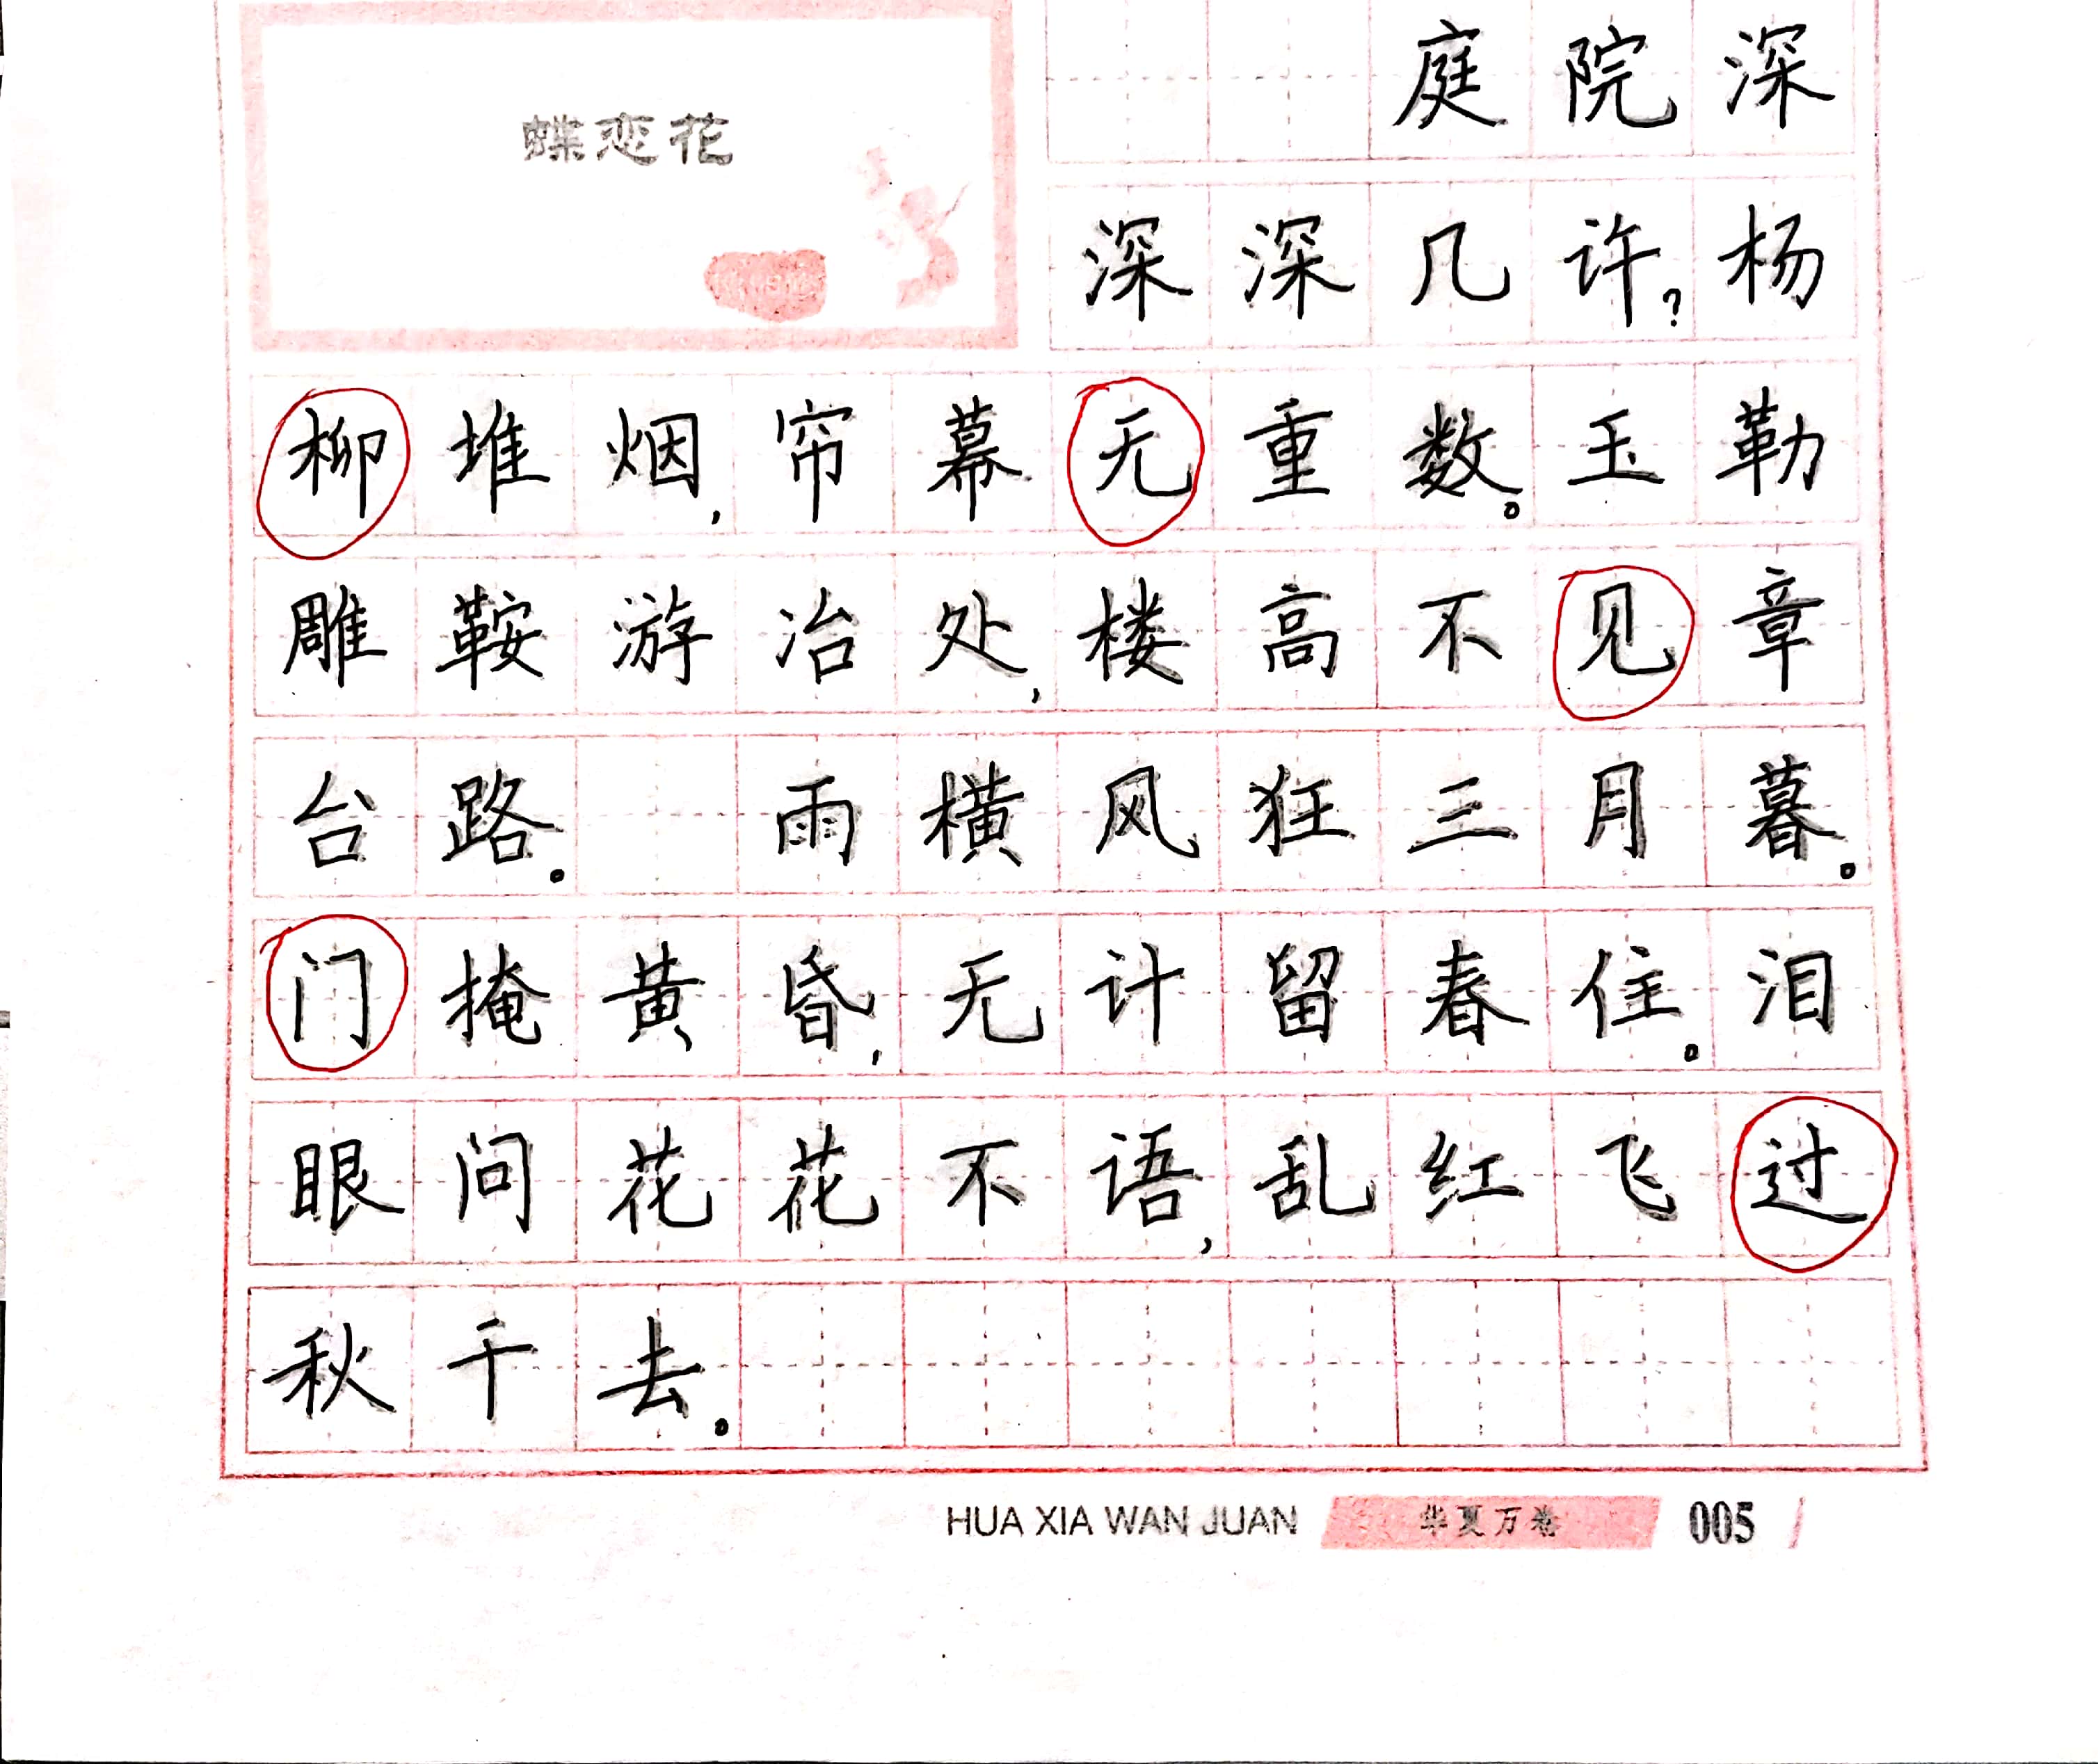 蝶恋花
庭院深
深深几许?杨
柳堆烟,帘幕无重数。玉勒
雕鞍游冶处,楼高不见章
台路。 雨横风狂三月暮。
门掩黄昏,无计留春住。泪
眼问花花不语,乱红飞过
秋千去。
HUA XIA WAN JUAN 华夏万卷 005